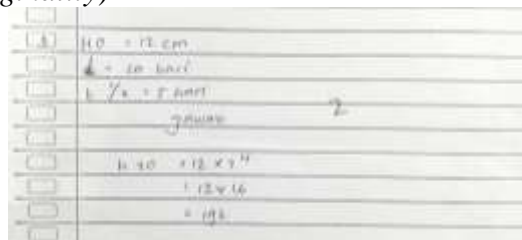 H0 = 12 cm
= 20 hari
t 1/2 = 5 hari
2
Jawab
H 20 = 12 x 2⁴
= 12 x 16
= 192